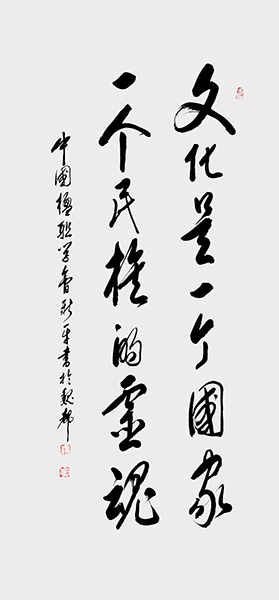 文化是一个國家
一个民族的靈魂
中國楹联学會書於魏都